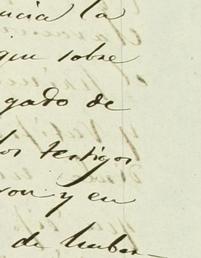 ncia la
que sobre
gado de
los testigos
ron y en
de haber